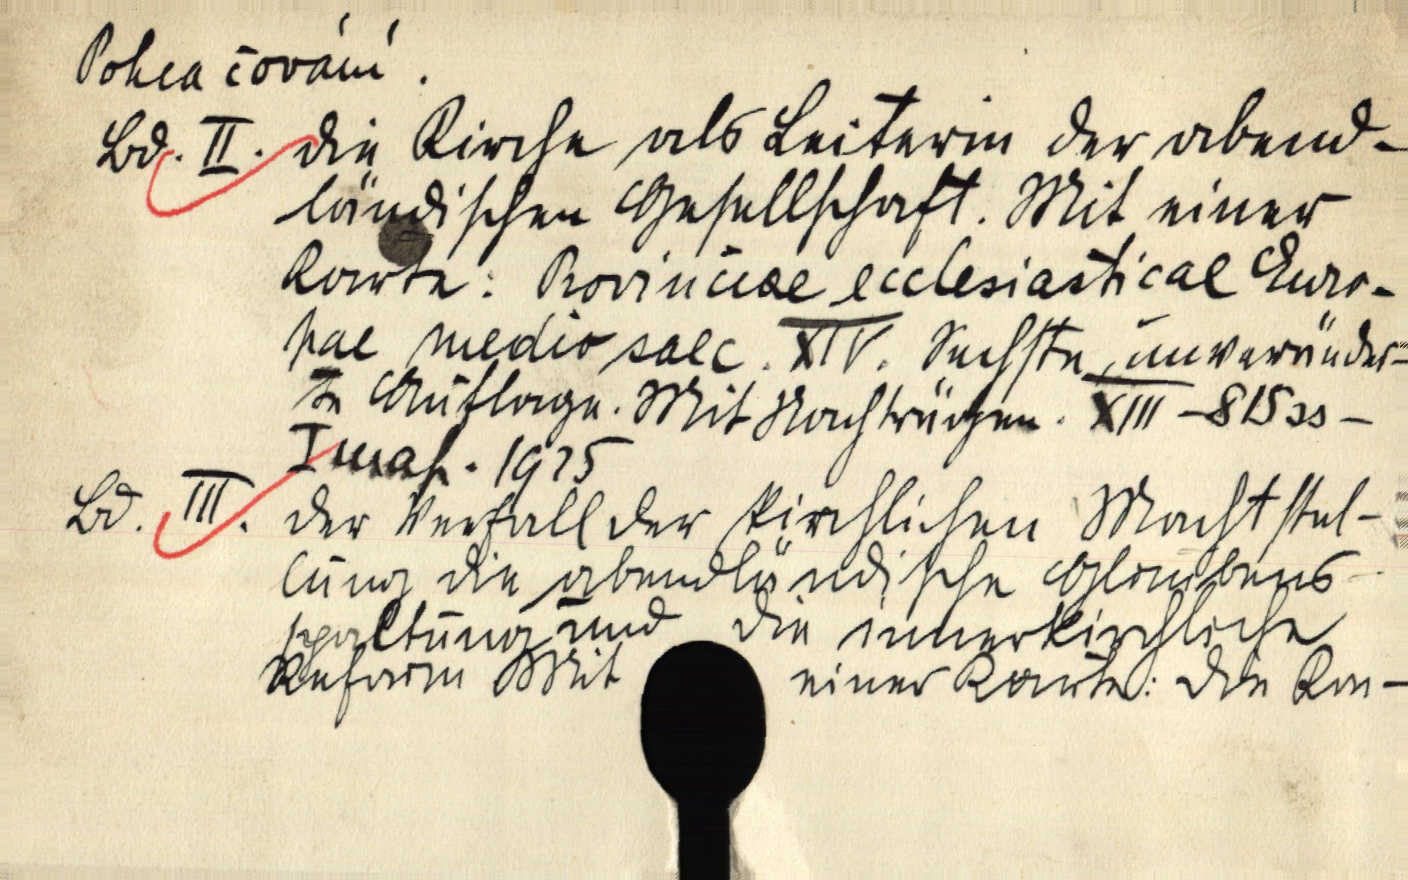 Pokračování.
Bd. II. die Kirche als Leiterin der abend-
ländischen Gesellschaft. Mit einer
Karte: Provinciae ecclesiasticae Euro-
pae medio saec. XIV. Sechste, unveränder-
te Auflage. Mit Nachträgen. XIII – 815 ss –
1 map. 1925
Bd. III. der Verfall der kirchlichen Machtstel-
lung die abendländische Glaubens-
spaltung und die innerkirchliche
Reform Mit einer Karte: Die Kon-